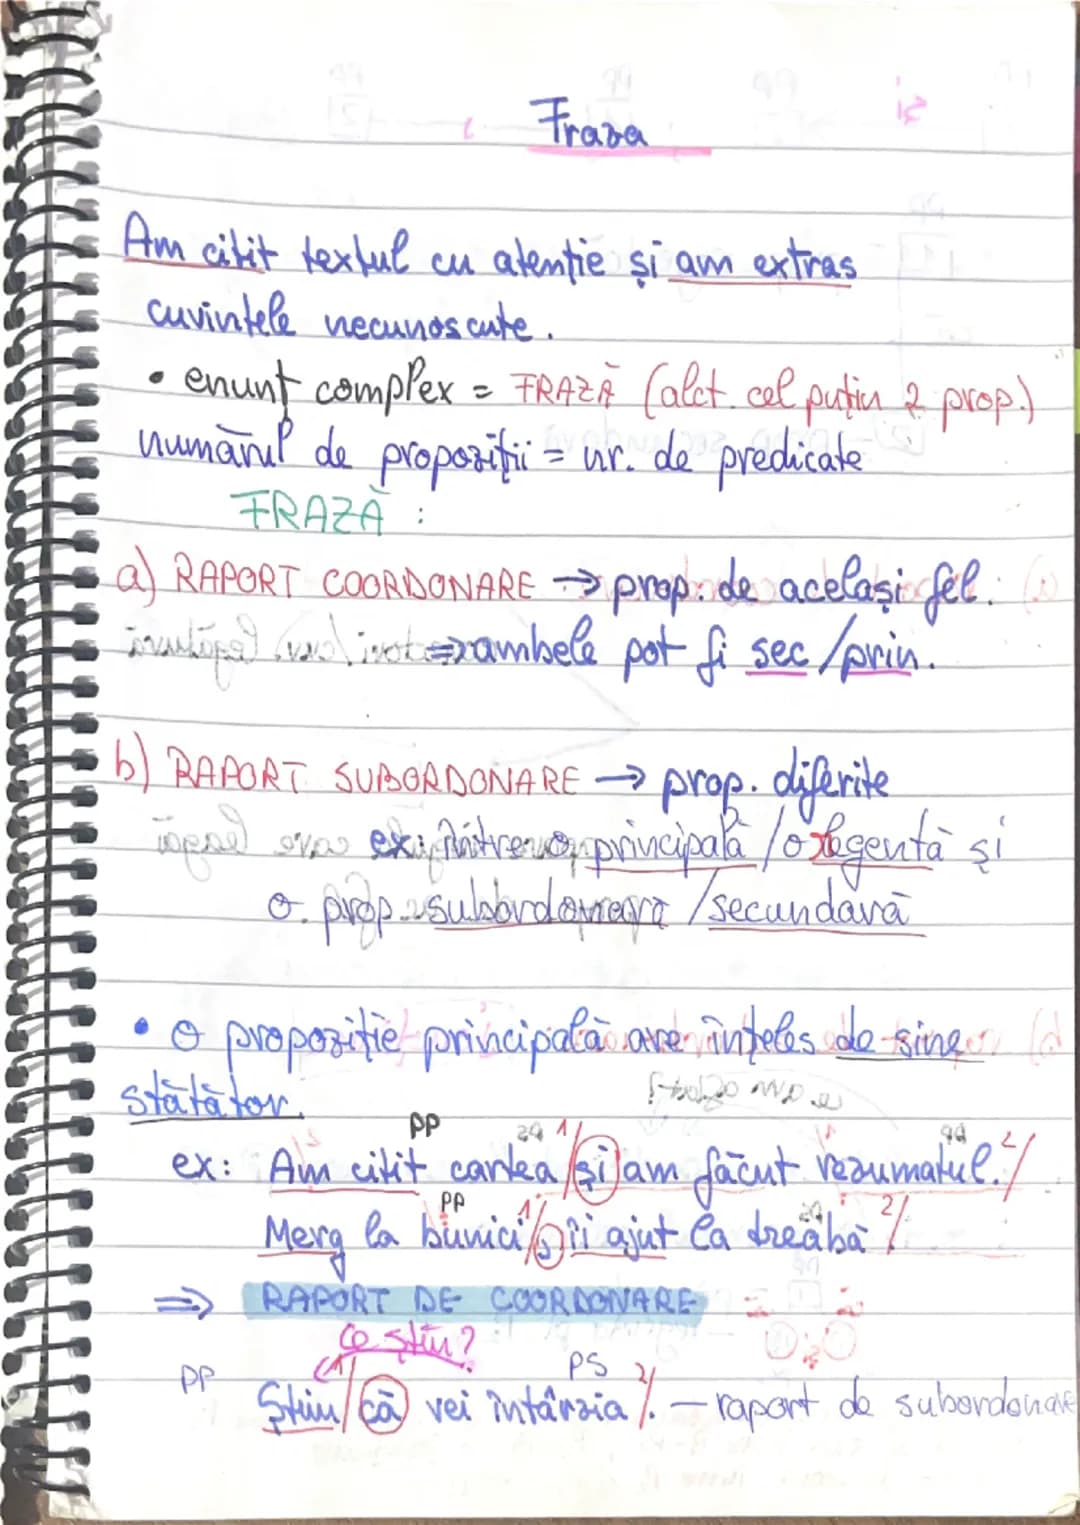 Fraza
Am citit textul cu atenție și am extras
cuvintele necunoscute.
• enunț complex = FRAZĂ (alct. cel puțin 2 prop.)
numărul de propoziții = nr. de predicate
FRAZĂ :
a) RAPORT COORDONARE → prop. de același fel.
⇒ ambele pot fi sec/prin.
b) RAPORT SUBORDONARE → prop. diferite
ex: între o principală / o regentă și
o prop. subordonată / secundară
• O propoziție principală are înțeles de sine
stătător.
PP 1 2
ex: Am citit cartea / și am făcut rezumatul. /
PP 1 2
Merg la bunici / , îi ajut la treabă /.
⇒ RAPORT DE COORDONARE
ce știu?
PP 1 PS 2
Știu / că vei întârzia /. – raport de subordonare